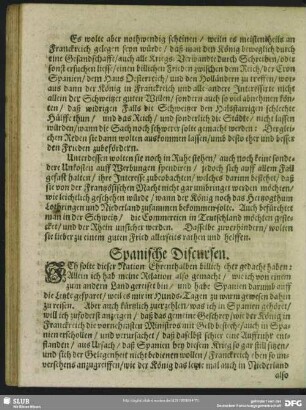 Es wolte aber nothwendig scheinen / weiln es meistentheils an
Franckreich gelegen seyn würde / daß man den König beweglich durch
eine Gesandschafft / auch alle Kriegs-Verwandte durch Schreiben / oder
sonst ersuchen liesse / einen billichen Frieden zwischen dem Reich / der Cron
Spanien / dem Haus Oesterreich / und den Holländern zu treffen / wor-
aus dann der König in Franckreich und alle andere Interessirte nicht
allein der Schweitzer guten Willen / sondern auch so viel abnehmen kön-
ten / daß widrigen Falls die Schweitzer den Nothzwängen schlechte
Hülffe thun / und das Reich / und sonderlich die Städte / nicht lassen
würden / wann die Sach noch schwerer solte gemacht werden: Derglei-
chen Reden sie dann wolten auskommen lassen / und umb desto eher und besser
den Frieden zubefördern.
Unterdessen wolten sie noch in Ruhe stehen / auch noch keine sonde-
re Unkosten auff Werbungen spendiren / jedoch sich auff allen Fall
gefast halten / ihr Interesse zubeobachten / welches darinn bestehet / daß
sie von der Frantzösischen Macht nicht gar umbringet werden möchten /
wie leichtlich geschehen würde / wann der König noch das Hertzogthum
Lothringen und Niederland zusammen bekommen solte. Auch befürchtet
man in der Schweitz / die Commercien in Teutschland möchten gestec-
ket / und der Rhein unsicher werden. Dasselbe zuverhindern / wolten
sie lieber zu einem guten Fried allerseits rathen und helffen.
Spanische Discursen.
Ich solte dieser Nation Ehrenhalben billich eher gedacht haben:
Allein ich hab meine Relation also gemacht / wie ich von einem
zum andern Land gereiset bin / und habe Spanien darumb auff
die Letzte gesparet / weil es mir in Hunds-Tagen zu warm gewesen dahin
zu reisen. Aber auch kürtzlich zuerzehlen / was ich in Spanien gehöret /
will ich zuforderst anzeigen / daß das gemeine Geschrey / wie der König in
Franckreich die vornehmsten Ministros mit Geld bestech / auch in Spa-
nien erschollen / und verursachet / daß daselbst schier eine Auffruhr ent-
standen / aus Ursach / daß Spanien bey diesem Krieg so gar still sitzen /
und sich der Gelegenheit nicht bedienen wollen / Franckreich eben so un-
versehens anzugreiffen / wie der König das letzte mal auch in Niederland
also
SLUB
Wir führen Wissen.
DFG